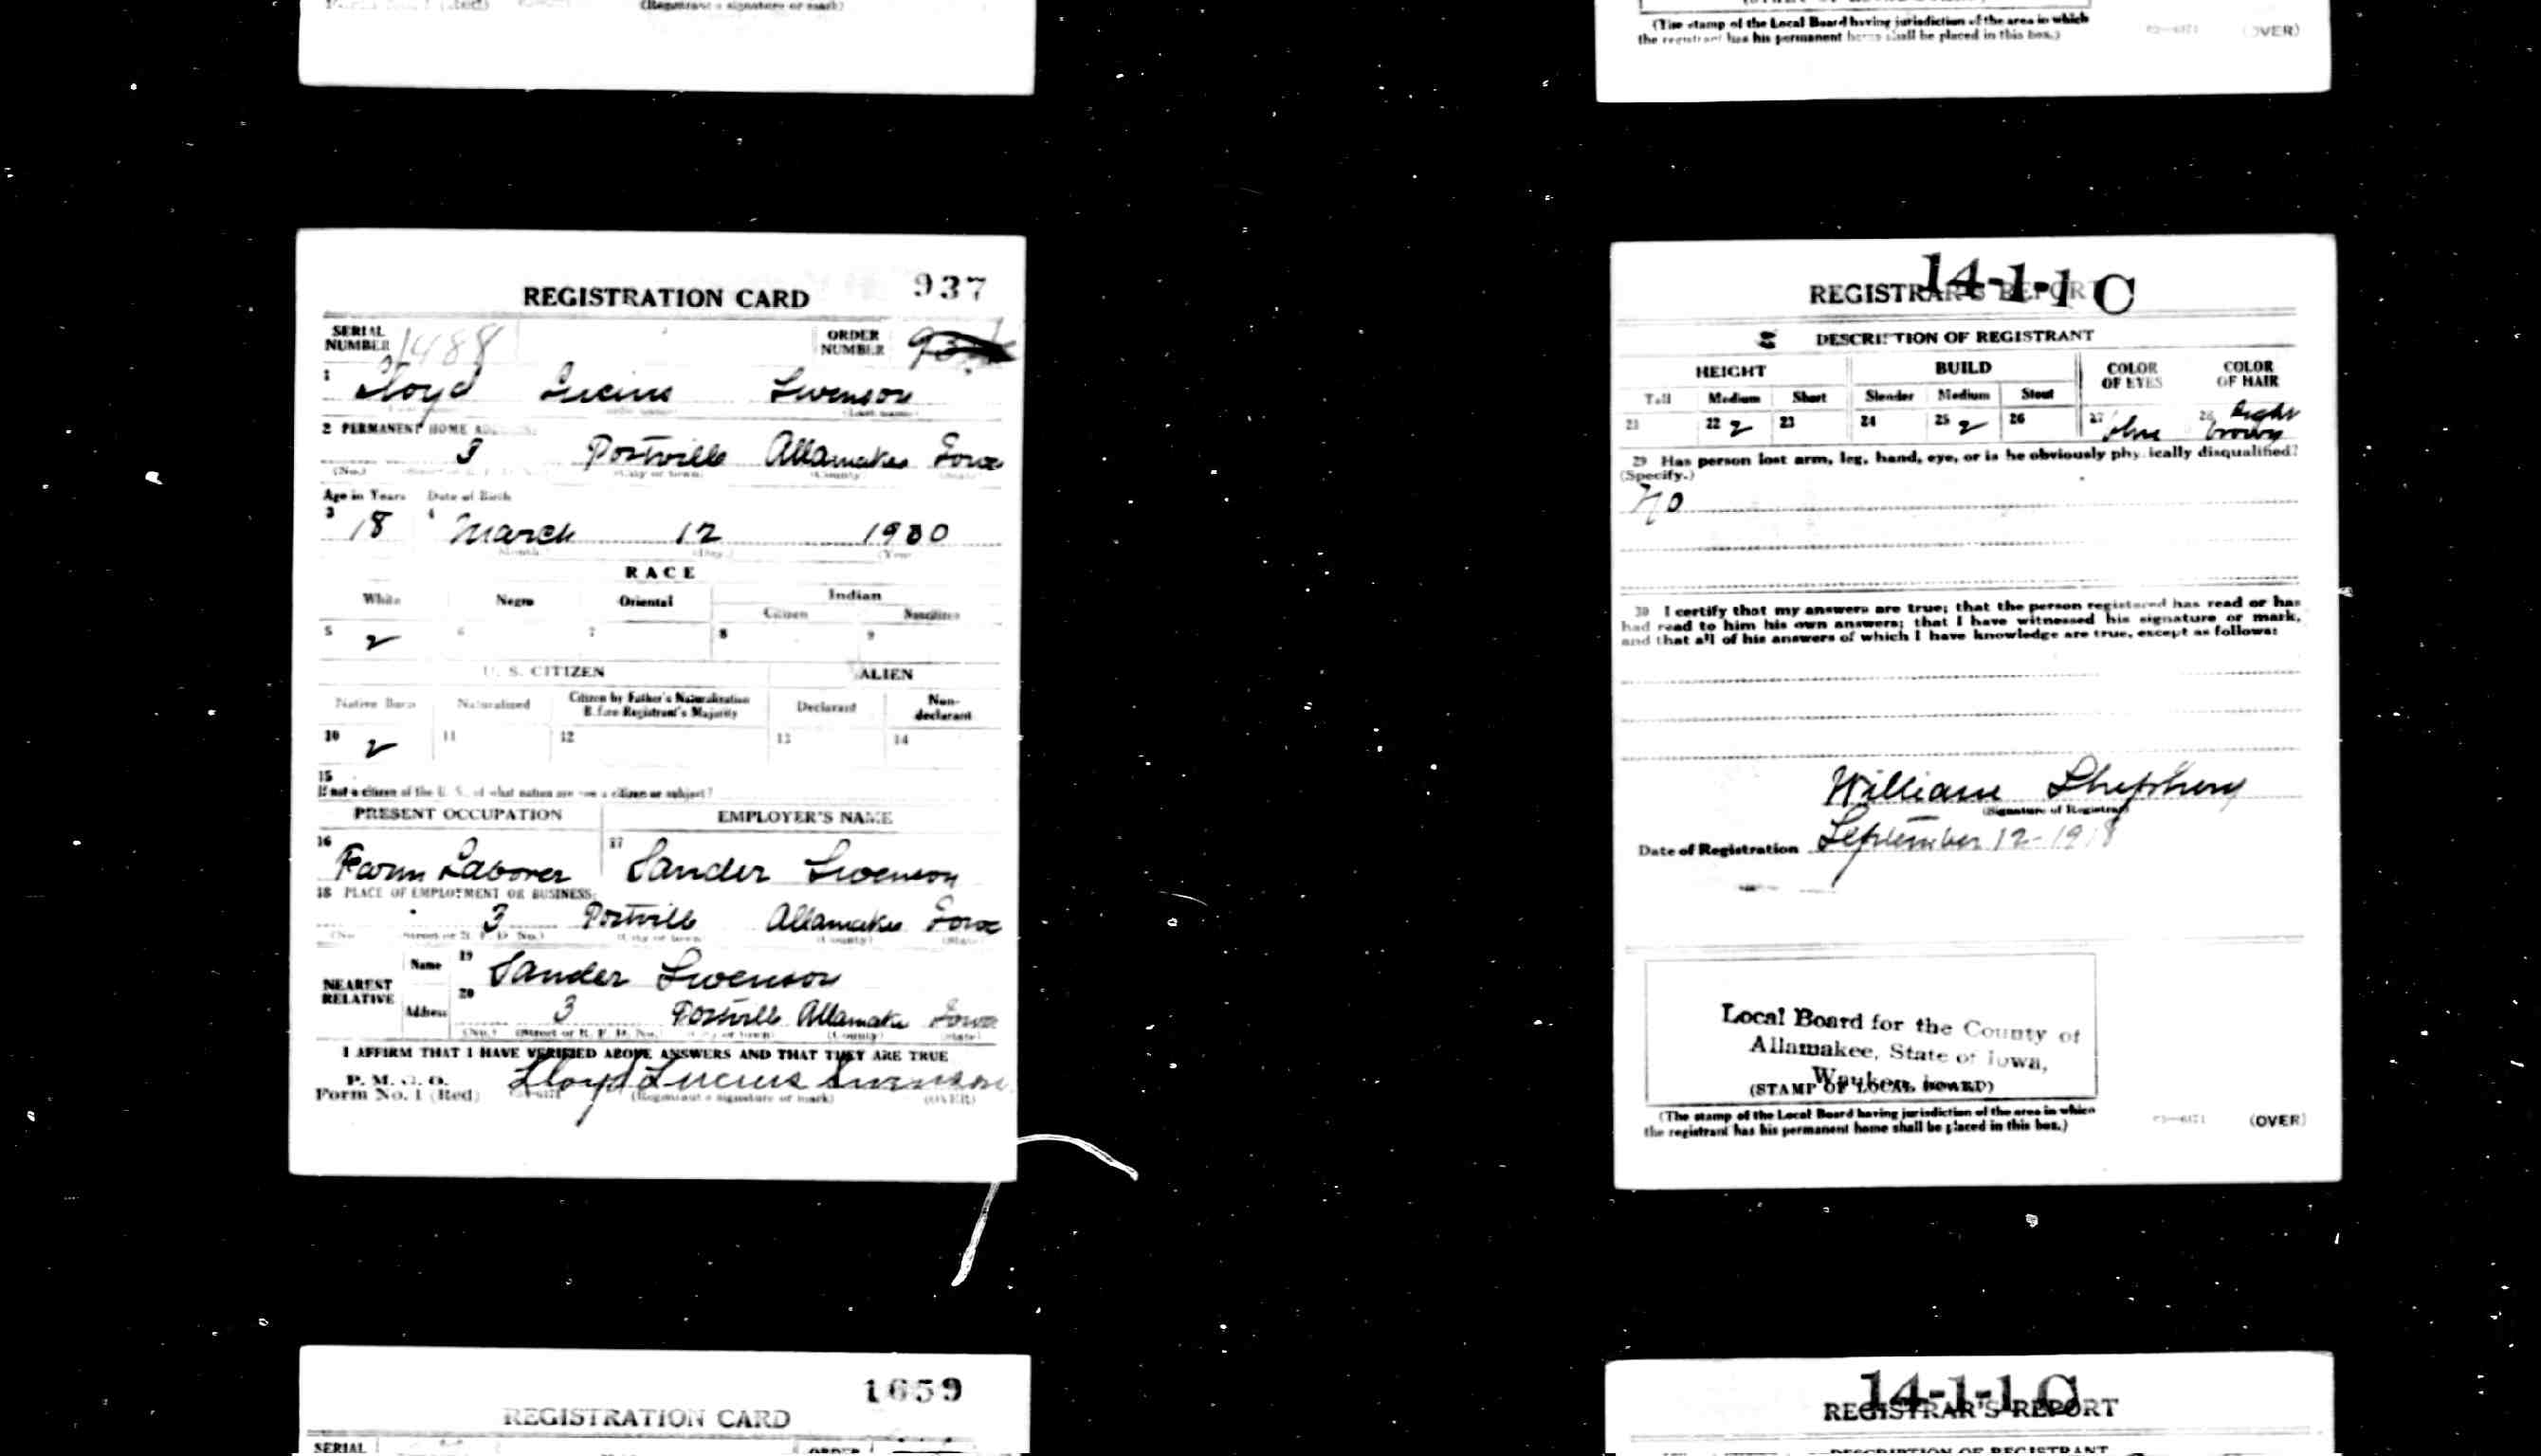 Form No. 1 (Red) (Registrant's signature or mark)
REGISTRATION CARD 937
SERIAL NUMBER 1488 ORDER NUMBER
1 Lloyd Lucius Swenson
(Last name)
2 PERMANENT HOME ADDRESS:
3 Postville Allamakee Iowa
(No.) (City or town) (County) (State)
Age in Years Date of Birth
3 18 4 March 12 1900
(Month.) (Day.) (Year.)
RACE
White Negro Oriental Indian
Citizen Noncitizen
5 6 7 8 9
U. S. CITIZEN ALIEN
Native Born Naturalized Citizen by Father's Naturalization Before Registrant's Majority Declarant Non-declarant
10 11 12 13 14
15
If not a citizen of the U. S., of what nation are you a citizen or subject?
PRESENT OCCUPATION EMPLOYER'S NAME
16 Farm Laborer 17 Sander Swenson
18 PLACE OF EMPLOYMENT OR BUSINESS:
3 Postvill Allamakee Iowa
(No.) (Street or R. F. D. No.) (City or town) (County) (State)
NEAREST RELATIVE Name 19 Sander Swenson
Address 20 3 Postville Allamake Iowa
(No.) (Street or R. F. D. No.) (City or town) (County) (State)
I AFFIRM THAT I HAVE VERIFIED ABOVE ANSWERS AND THAT THEY ARE TRUE
P. M. G. O.
Form No. 1 (Red) Lloyd Lucius Swenson
(Registrant's signature or mark) (OVER)
1659
REGISTRATION CARD
SERIAL ORDER
(The stamp of the Local Board having jurisdiction of the area in which
the registrant has his permanent home shall be placed in this box.) (OVER)
14-1-1 C
REGISTRAR'S REPORT
DESCRIPTION OF REGISTRANT
HEIGHT BUILD COLOR OF EYES COLOR OF HAIR
Tall Medium Short Slender Medium Stout
21 22 23 24 25 26 27 blue 28 Light brown
29 Has person lost arm, leg, hand, eye, or is he obviously physically disqualified?
(Specify.)
No
30 I certify that my answers are true; that the person registered has read or has
had read to him his own answers; that I have witnessed his signature or mark,
and that all of his answers of which I have knowledge are true, except as follows:
William
(Signature of Registrar)
Date of Registration September 12-1918
Local Board for the County of
Allamakee, State of Iowa,
Waukon, Iowa.
(STAMP OF LOCAL BOARD)
(The stamp of the Local Board having jurisdiction of the area in which
the registrant has his permanent home shall be placed in this box.) (OVER)
14-1-1 C
REGISTRAR'S REPORT
DESCRIPTION OF REGISTRANT